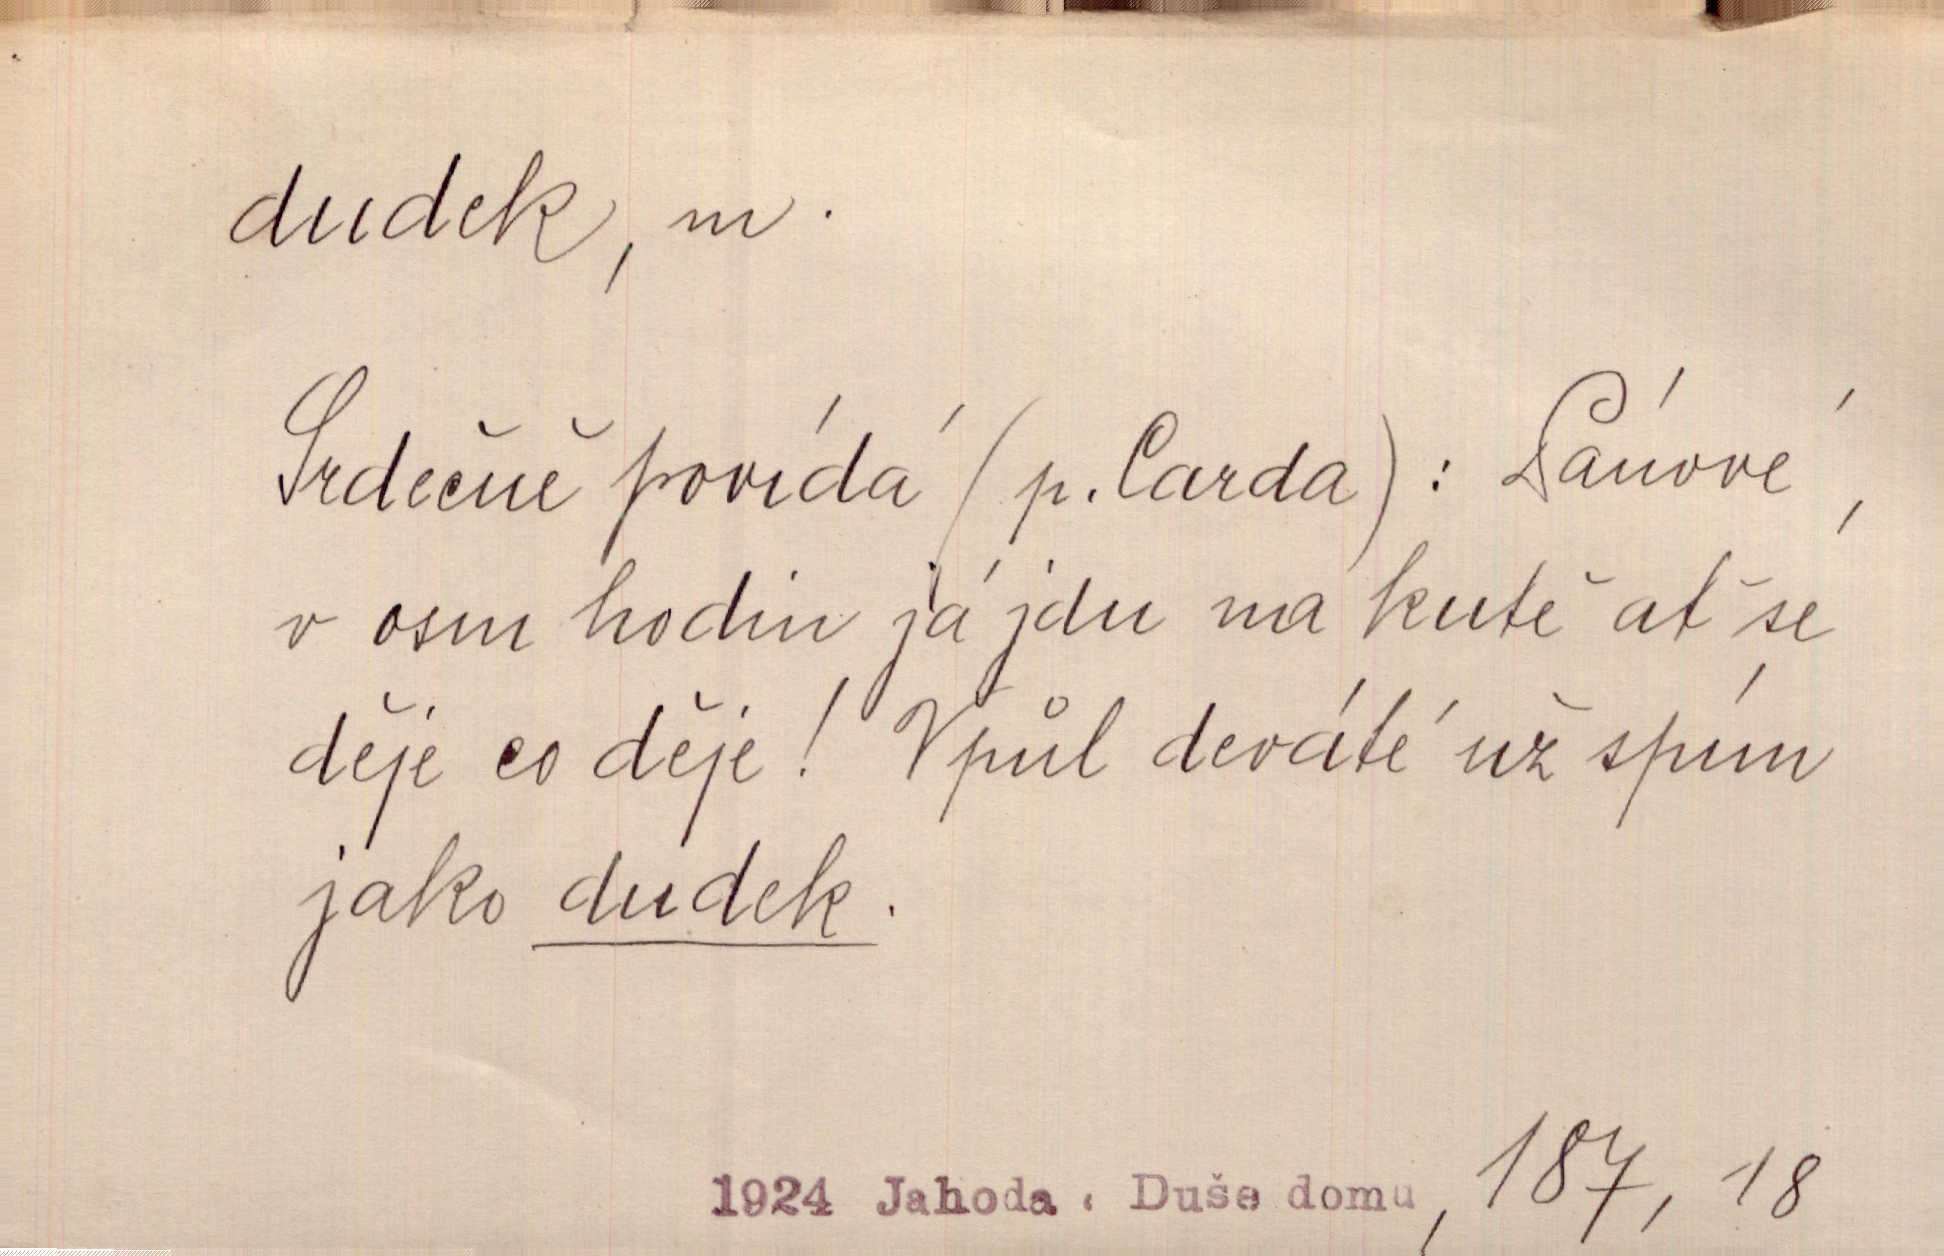 dudek, m.
Srdečně povídá (p. Carda): Pánové,
v osm hodin já jdu na kutě ať se
děje co děje! V půl deváté už spím
jako dudek.
1924 Jahoda. Duše domu, 187, 18